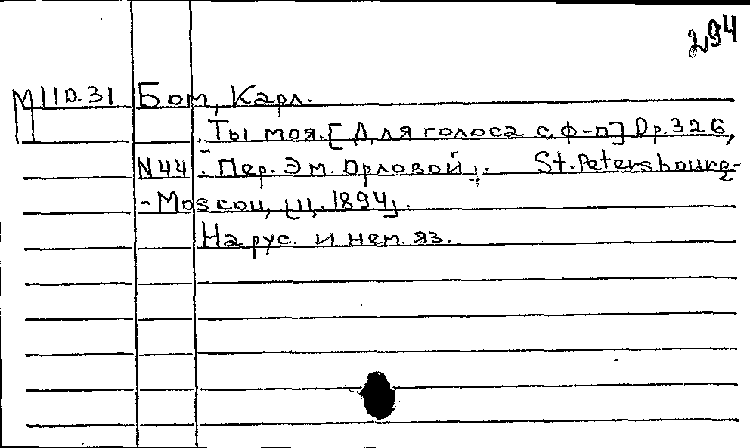 294
М110.31 Бом, Карл.
Ты моя. [Для голоса с ф-п] Op. 326,
N44. Пер. Эм. Орловой. St. Petersbourg-
-Moscou, [ц. 1894].
На рус. и нем. яз.